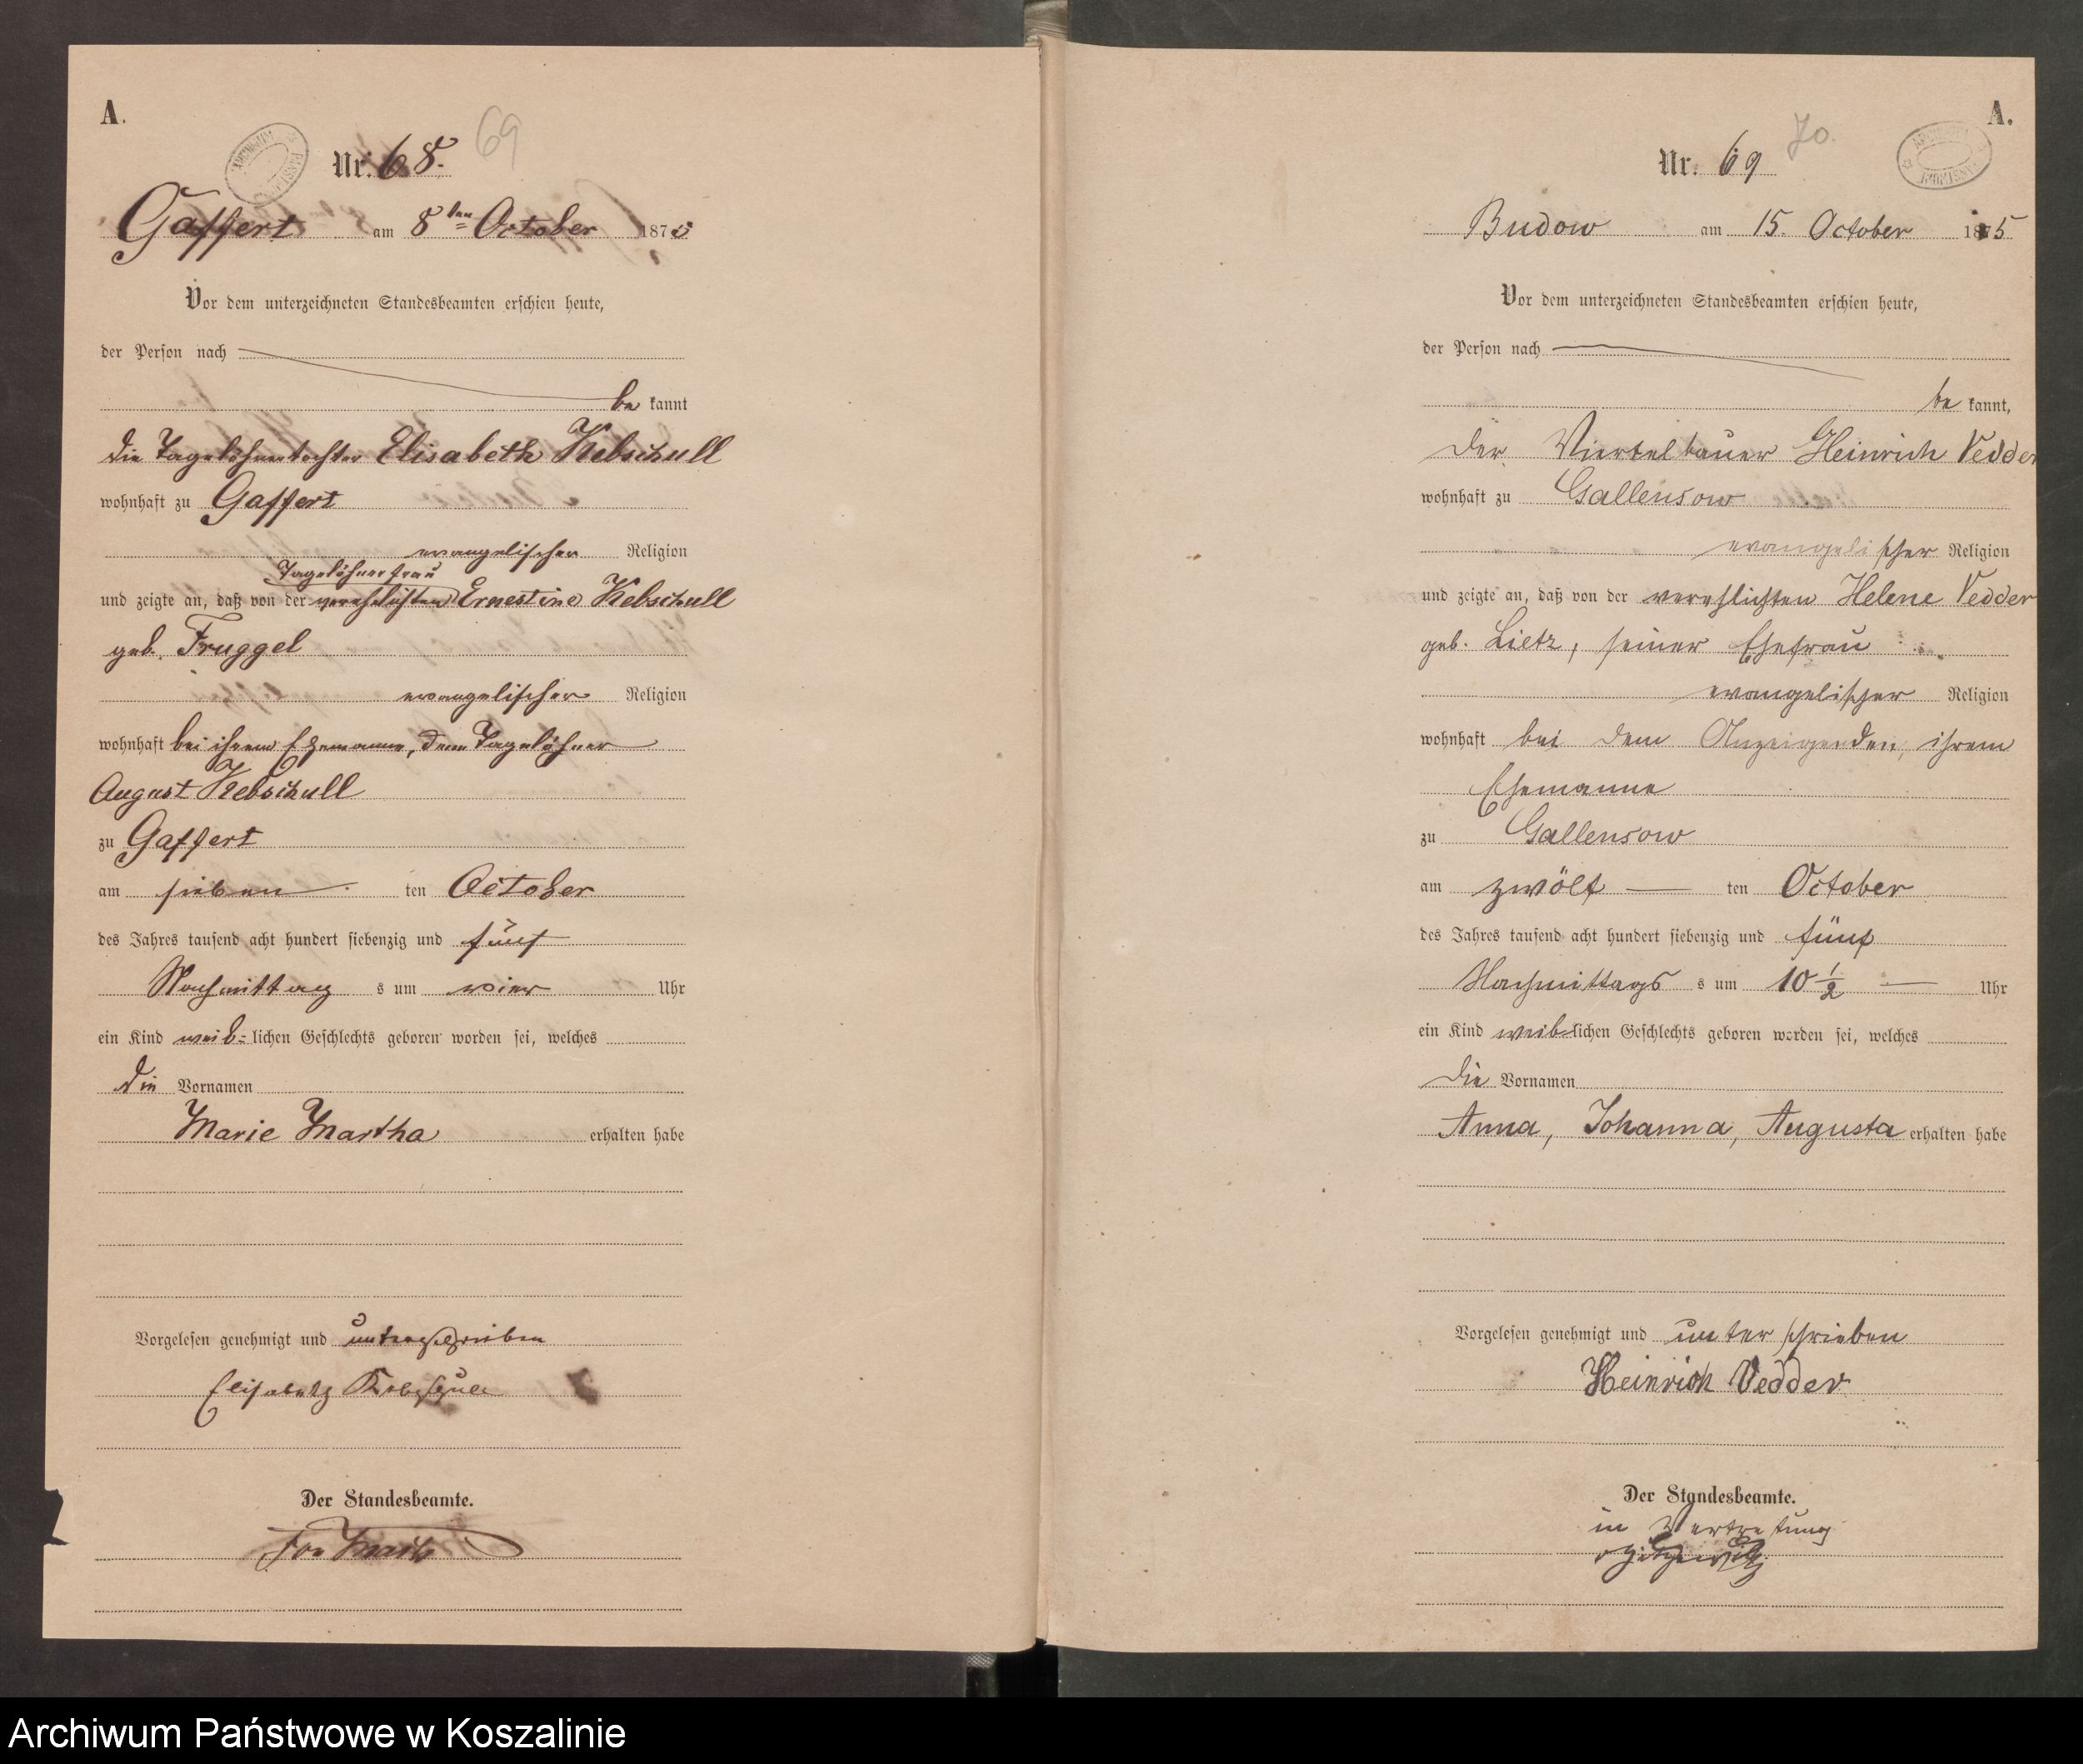 A.
69
Nr. 68.
Gaffert am 8ten October 1875
Vor dem unterzeichneten Standesbeamten erschien heute,
der Person nach
be kannt
die Tagelöhnertochter Elisabeth Kebschull
wohnhaft zu Gaffert
evangelischer Religion
Tagelöhnerfrau
und zeigte an, daß von der verehelichten Ernestine Kebschull
geb. Fruggel
evangelischer Religion
wohnhaft bei ihrem Ehemanne, dem Tagelöhner
August Kebschull
zu Gaffert
am sieben ten October
des Jahres tausend acht hundert siebenzig und fünf
Nachmittag s um vier Uhr
ein Kind weib= lichen Geschlechts geboren worden sei, welches
die Vornamen
Marie Martha erhalten habe
Vorgelesen genehmigt und unterschrieben
Elisabeth Kebschull
Der Standesbeamte.
A.
70.
Nr. 69
Budow am 15. October 1875
Vor dem unterzeichneten Standesbeamten erschien heute,
der Person nach
be kannt,
der Viertelbauer Heinrich Vedder
wohnhaft zu Gallensow
evangelischer Religion
und zeigte an, daß von der verehlichten Helene Vedder
geb. Lietz, seiner Ehefrau
evangelischer Religion
wohnhaft bei dem Anzeigenden, ihrem
Ehemanne
zu Gallensow
am zwölf ten October
des Jahres tausend acht hundert siebenzig und fünf
Nachmittags s um 10 1/2 Uhr
ein Kind weiblichen Geschlechts geboren worden sei, welches
die Vornamen
Anna, Johanna, Augusta erhalten habe
Vorgelesen genehmigt und unterschrieben
Heinrich Vedder
Der Standesbeamte.
in Vertretung
Archiwum Państwowe w Koszalinie